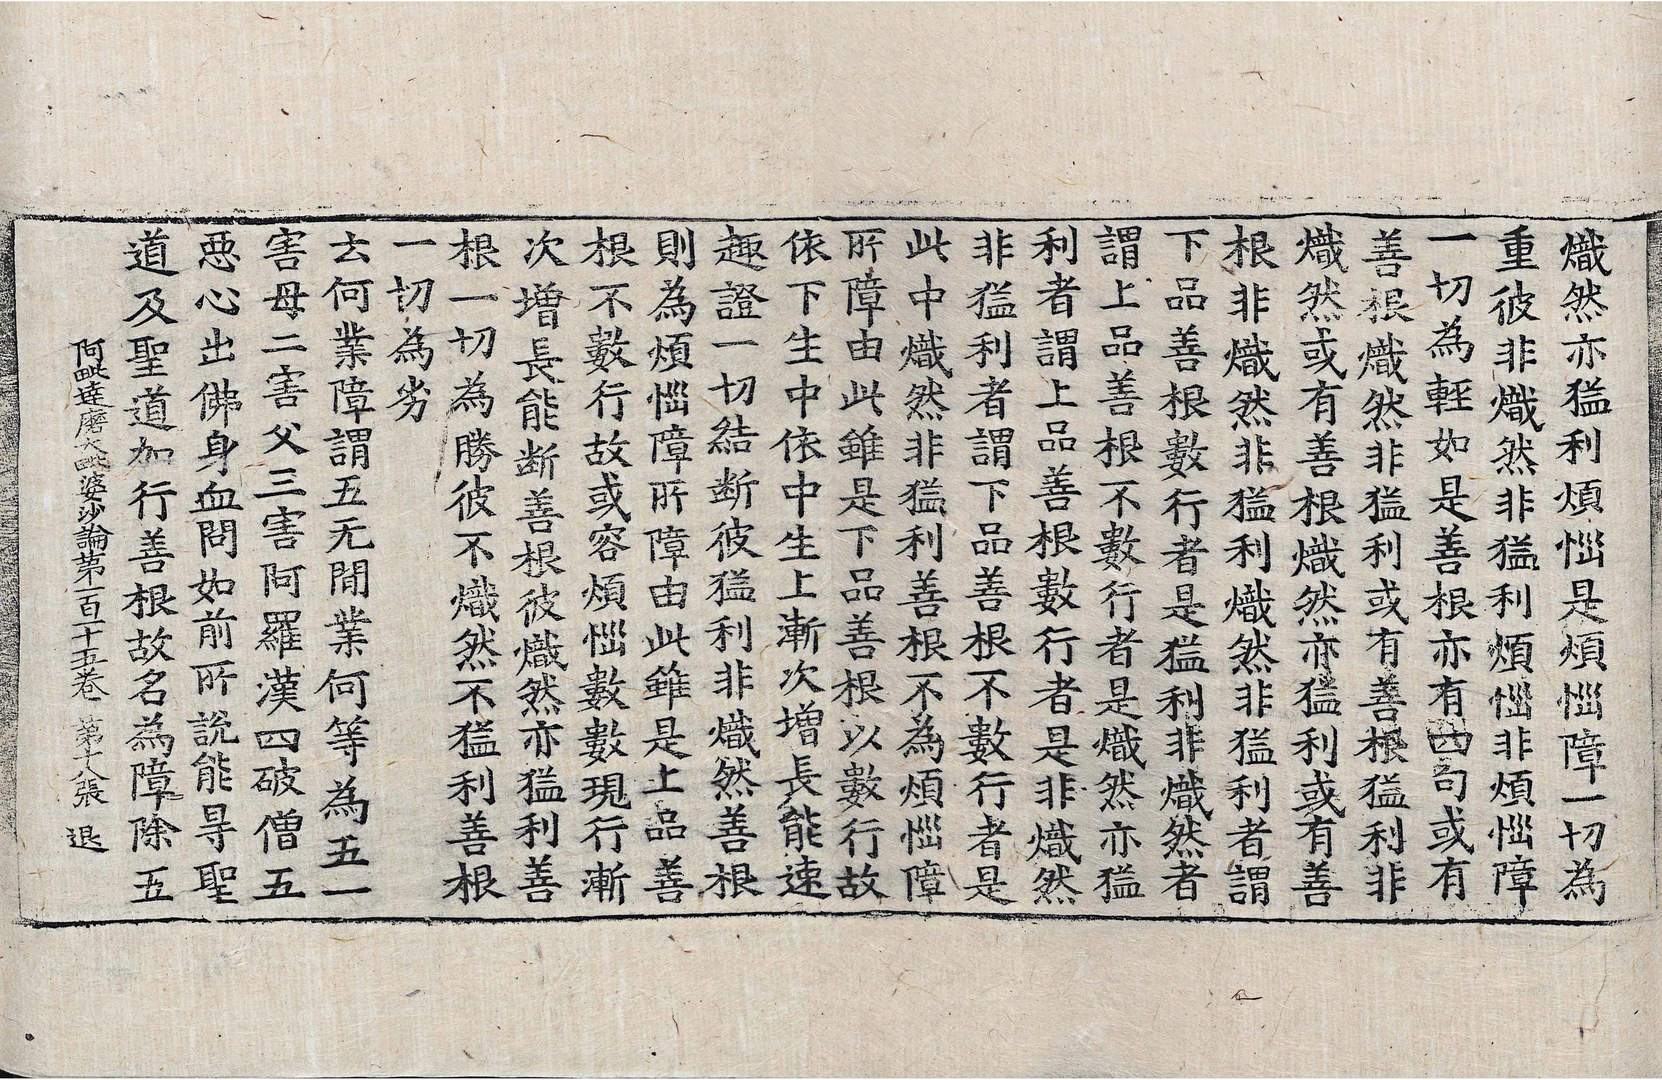 熾然亦猛利煩惱是煩惱障一切為
重彼非熾然非猛利煩惱非煩惱障
一切為輕如是善根亦有四句或有
善根熾然非猛利或有善根猛利非
熾然或有善根熾然亦猛利或有善
根非熾然非猛利熾然非猛利者謂
下品善根數行者是猛利非熾然者
謂上品善根不數行者是熾然亦猛
利者謂上品善根數行者是非熾然
非猛利者謂下品善根不數行者是
此中熾然非猛利善根不為煩惱障
所障由此雖是下品善根以數行故
依下生中依中生上漸次增長能速
趣證一切結斷彼猛利非熾然善根
則為煩惱障所障由此雖是上品善
根不數行故或容煩惱數數現行漸
次增長能断善根彼熾然亦猛利善
根一切為勝彼不熾然不猛利善根
一切為劣
云何業障謂五无間業何等為五一
害母二害父三害阿羅漢四破僧五
惡心出佛身血問如前所說能㝵聖
道及聖道加行善根故名為障除五
阿毗達磨大毗婆沙論第一百十五卷 第十八張 退